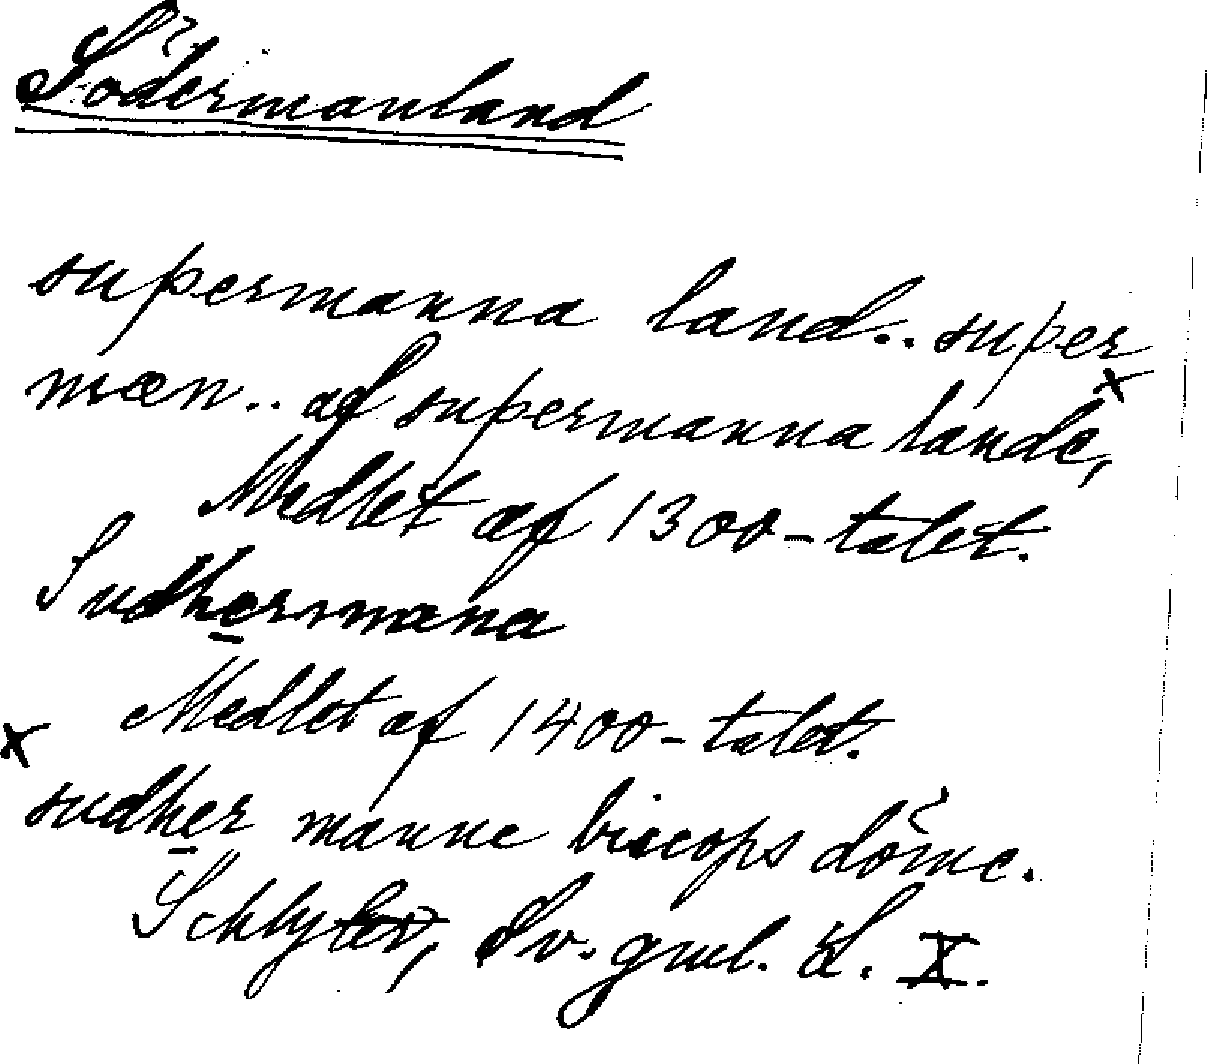 Södermanland
suþermanna land.. suþer
mæn.. af suþermanna lande,
Medlet af 1300-talet.
Sudhermana
Medlet af 1400-talet.
x sudher manne biscops döme.
Schlyter, Sv. gml. L. X.